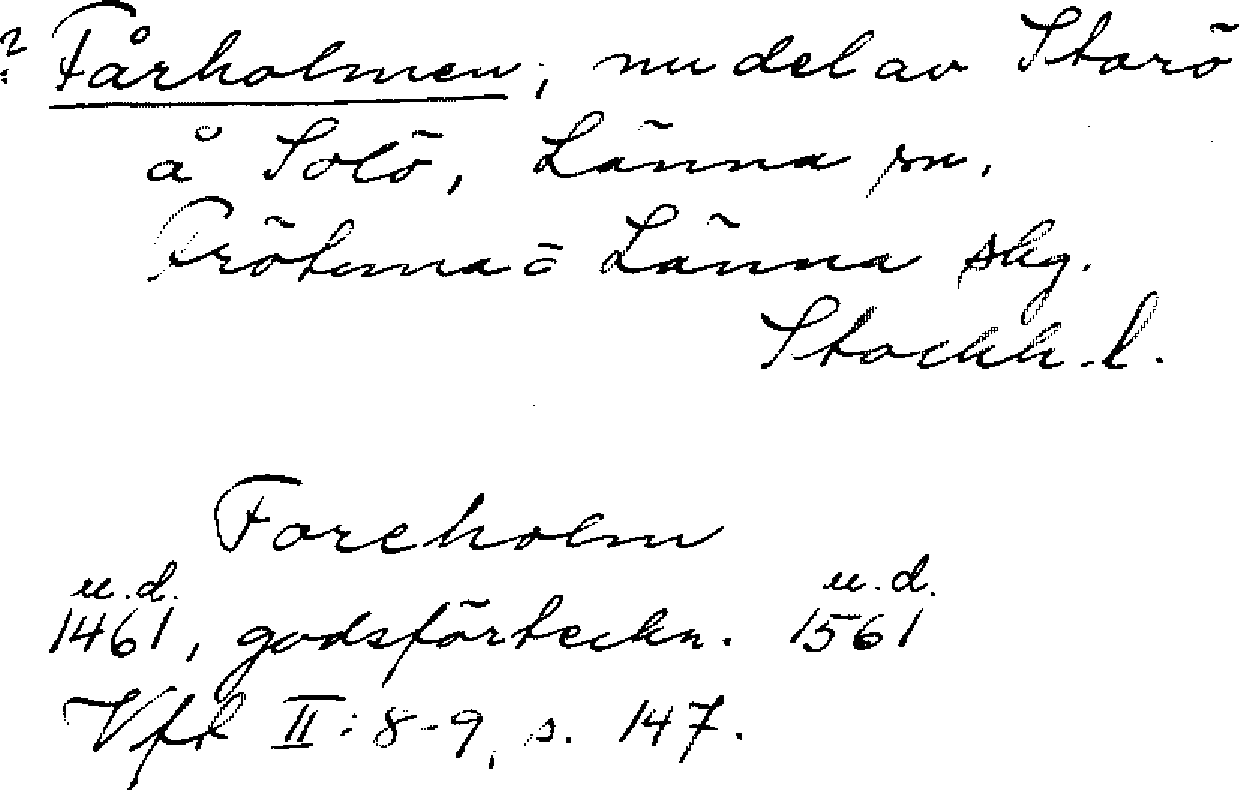 ? Fårholmen, nu del av Storö
å Solö, Länna sn.
Frötuna o Länna skg.
Stockh. l.
Foreholm
u.d. u.d.
1461, godsförteckn. 1561
Vfr II:8-9, s. 147.